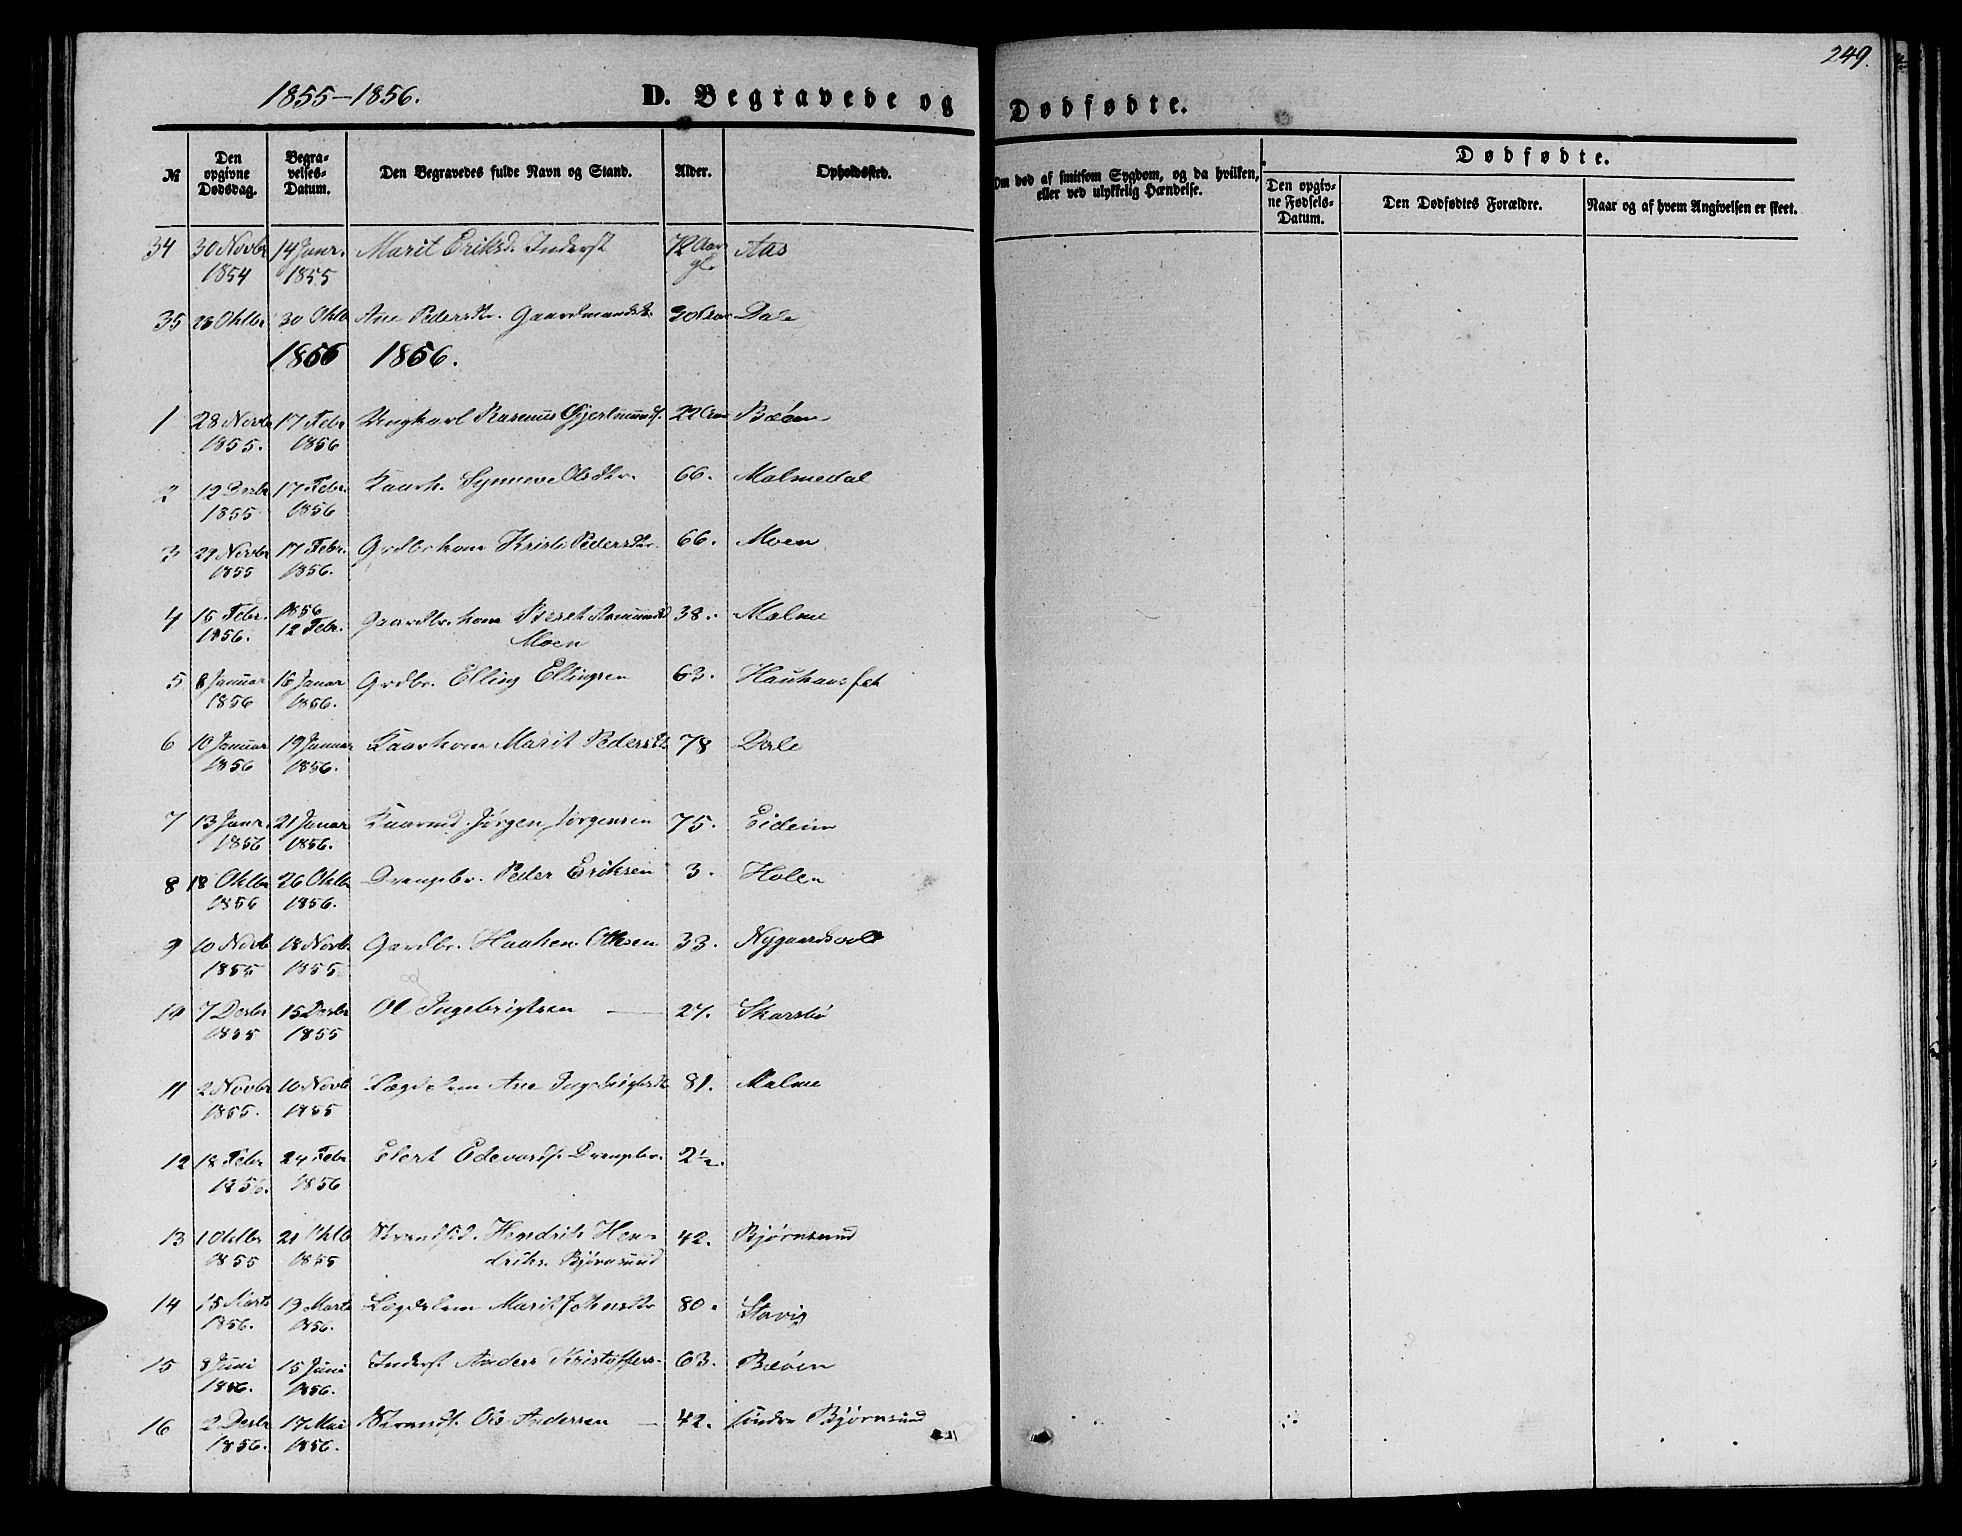 249.
1855-1856.
D. Begravede og Dødfødte.
№
Den opgivne Dødsdag.
Begravelses-Datum.
Den Begravedes fulde Navn og Stand.
Alder.
Opholdssted.
Om død af smitsom Sygdom, og da hvilken, eller ved ulykkelig Hændelse.
Dødfødte.
Den opgivne Fødsels-Datum.
Den Dødfødtes Forældre.
Naar og af hvem Angivelsen er skeet.
34 30 Novbr 14 Janr. Marit Eriksd. Inderst 72 Aar Aas
1854 1855 gl.
35 23 Oktbr 30 Oktb Ane Pedersdtr. Gaardmands 30 Aar Dale
1856 1856.
1 28 Novbr 17 Febr Ungkarl Rasmus Gjertmunds. 22 Aar Bæöen
1855. 1856
2 12 Desbr 17 Febr. Kaark. Synneve Olsdtr. 66. Malmedal
1855 1856
3 29 Novbr 17 Febr. Grdbrkone Kristi Pedersdtr. 66. Moen
1855 1856.
4 15 Febr. 1856 Gaardbr. kone Bereth 38. Malme
1856. 12 Febr. Moen
5 8 Januar 16 Januar Grdbr. Elling Ellingsen 63. Haukaas
1856 1856.
6 10 Januar 19 Januar Kaarkone Marit Pedersdtr 78 Dale
1856 1856.
7 13 Janr. 21 Januar Kaarmd. Jørgen Jørgensen 75. Eidem
1856 1856.
8 18 Oktbr 26 Oktb Drengebr. Peder Eriksen 3. Holen
1856 1856.
9 10 Novb 18 Novb. Gardbr. Haaken Olksen 33. Nygaardsvold
1855 1855
10 7 Desbr 15 Desbr Ol Ingebrigtsen — 27. Skarsbö
1855 1855
11 2 Novbr 10 Novb Lægdslem Ane Ingebrigtsdtr 81. Malme
1855. 1855
12 18 Febr 24 Febr Elert Edevards. Drengebr. 2½.
1856. 1856
13 1 Oktbr 21 Oktb Strandsid. Hendrik Hen- 42. Bjørnsund
1855 1855 driks. Bjørnsund
14 15 Marts 19 Marts Lægdslem Marit Johnsdtr 80. Stavig
1856. 1856.
15 8 Juni 15 Juni Inderst Anders Kristoffers. 63. Bæöen
1856. 1856.
16 2 Desbr 17 Mai Strands. Ole Andersen — 42. søndre Bjørnsund
1856. 1856.